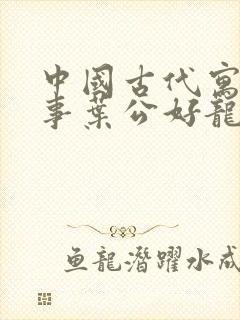 中國古代寓
事葉公好龍
魚龍潛躍水成